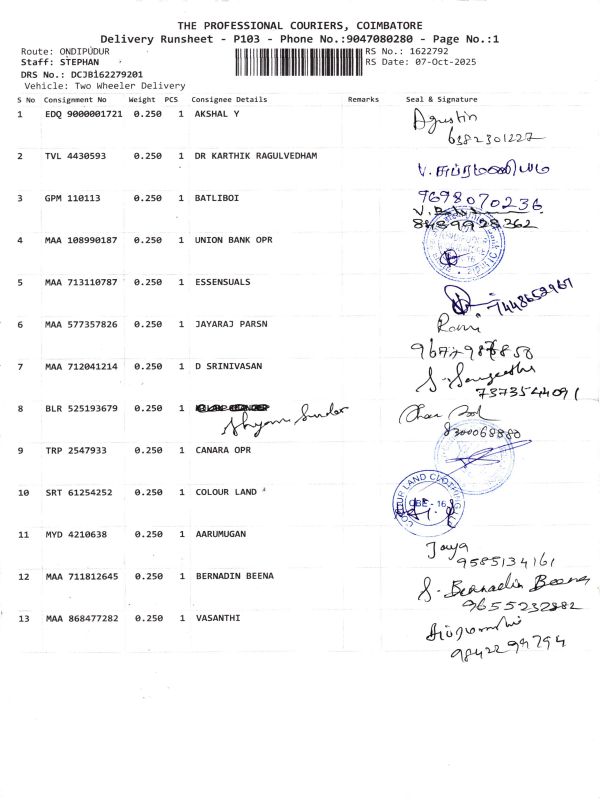 THE PROFESSIONAL COURIERS, COIMBATORE
Delivery Runsheet - P103 - Phone No.:9047080280 - Page No.:1
Route: ONDIPUDUR
RS No.: 1622792
Staff: STEPHAN
RS Date: 07-Oct-2025
DRS No.: DCJB162279201
Vehicle: Two Wheeler Delivery
S No Consignment No Weight PCS Consignee Details Remarks Seal & Signature
1 EDQ 9000001721 0.250 1 AKSHAL Y Agustin
6382301227
2 TVL 4430593 0.250 1 DR KARTHIK RAGULVEDHAM V. சுப்ரமணியம்
9698070236
3 GPM 110113 0.250 1 BATLIBOI
8489928362
4 MAA 108990187 0.250 1 UNION BANK OPR
5 MAA 713110787 0.250 1 ESSENSUALS
7448652967
6 MAA 577357826 0.250 1 JAYARAJ PARSN Rani
7 MAA 712041214 0.250 1 D SRINIVASAN S. Sangeetha
7373544091
8 BLR 525193679 0.250 1
Shyam Sunder
8300068880
9 TRP 2547933 0.250 1 CANARA OPR
10 SRT 61254252 0.250 1 COLOUR LAND
COLOUR LAND CLOTHING
CBE - 16
11 MYD 4210638 0.250 1 AARUMUGAN Jaya
9585134161
12 MAA 711812645 0.250 1 BERNADIN BEENA S. Bernadin Beena
9655232882
13 MAA 868477282 0.250 1 VASANTHI
9842299794